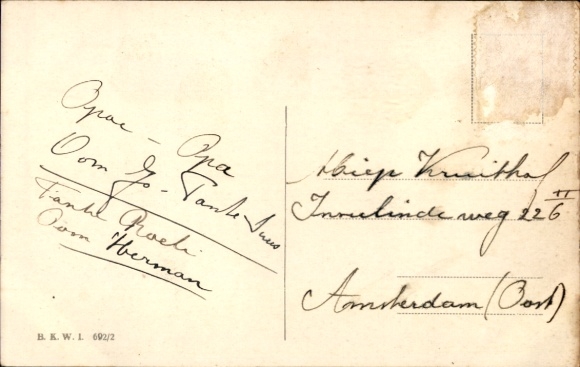 Opoe - Opa
Oom Jo - Tante Suus
Tante Roeli
Oom Herman
Miep Kruithof
Insulinde weg 226 II
Amsterdam (Oost)
B. K. W. I. 692/2